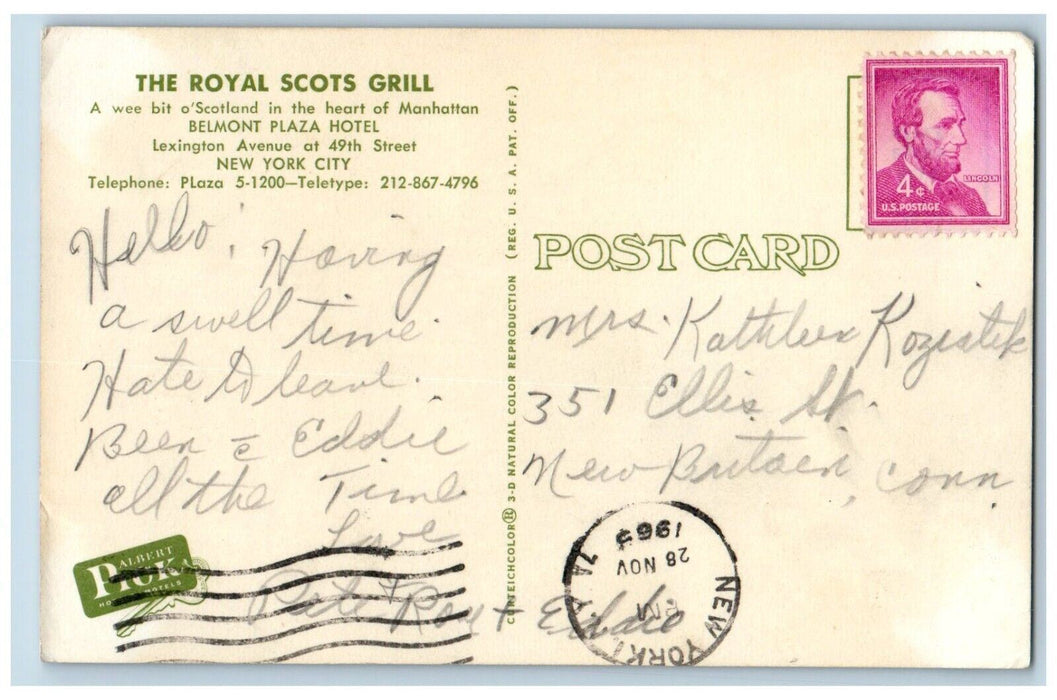 THE ROYAL SCOTS GRILL
A wee bit o'Scotland in the heart of Manhattan
BELMONT PLAZA HOTEL
Lexington Avenue at 49th Street
NEW YORK CITY
Telephone: PLaza 5-1200—Teletype: 212-867-4796
Hello, Having
a swell time.
Hate to leave.
Been c̄ Eddie
all the Time
Love
Pete + Ray + Eddie
ALBERT
PICK
HOTELS
CURTEICHCOLOR® 3-D NATURAL COLOR REPRODUCTION (REG. U. S. A. PAT. OFF.)
LINCOLN
4¢
U.S. POSTAGE
POST CARD
Mrs. Kathleen
351 Ellis St.
New Britain, Conn
NEW YORK
PM
28 NOV